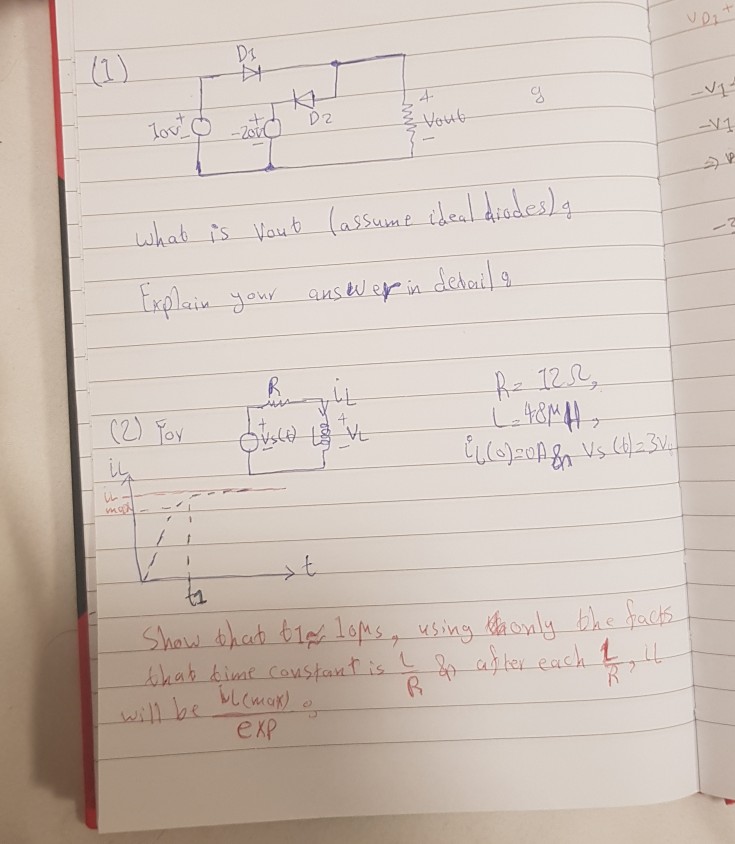 VD1+
(1)
D1
-V1
10V + -
-20V + -
D2
+
Vout
-
g
-V1
What is Vout (assume ideal diodes) g
Explain your answer in detail g
(2) For
R
iL
+
Vs(t)
-
L
+
VL
-
R= 12Ω,
L=48μH,
iL(0)=0A & Vs(t)=3V.
iL
iL
max
t
t1
Show that t1≈ 10μs, using only the facts
that time constant is L/R & after each L/R, iL
will be iL(max)/exp g